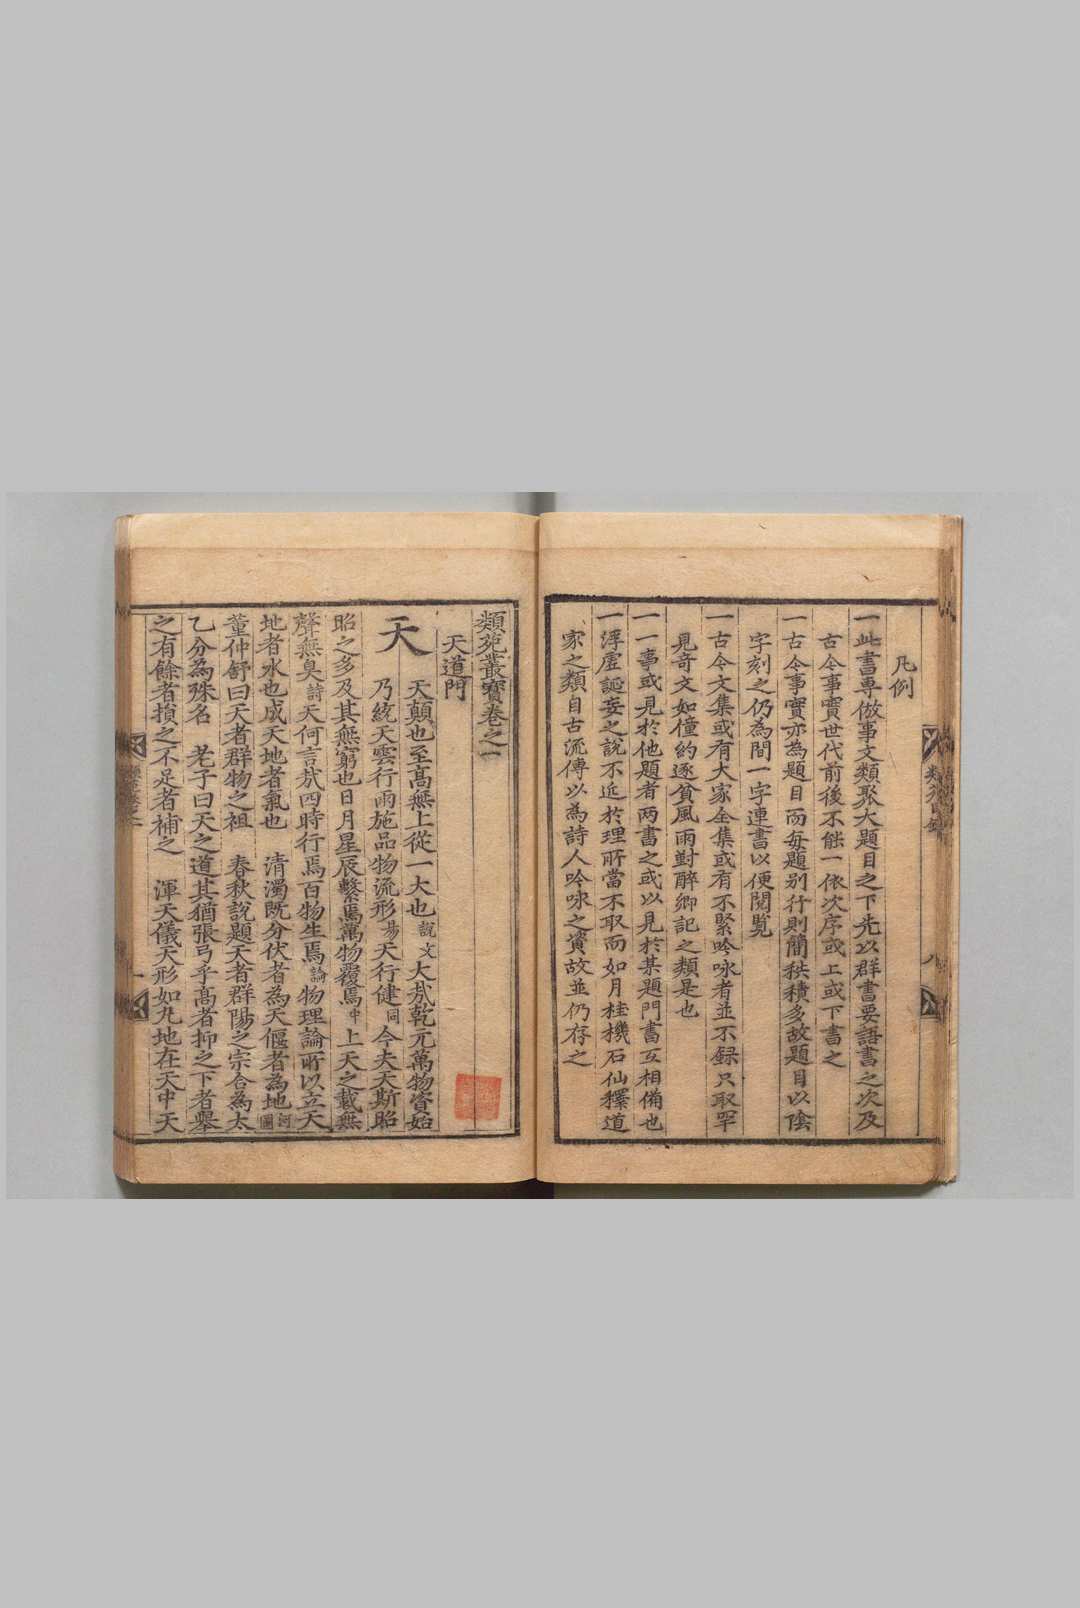 凡例
一此書専倣事文類聚大題目之下先以群書要語書之次及
古今事實世代前後不能一依次序或上或下書之
一古今事實亦為題目而每題别行則簡秩積多故題目以陰
字刻之仍為間一字連書以便閱覧
一古今文集或有大家全集或有不緊吟咏者並不録只取罕
見奇文如僮約逐貧風雨對醉鄉記之類是也
一一事或見於他題者两書之或以見於某題門書互相備也
一浮虛誕妄之說不近於理所當不取而如月桂機石仙釋道
家之類自古流傳以為詩人吟咏之資故並仍存之
類苑叢寶卷之一
天道門
天
天顛也至髙無上從一大也說文大㢤乾元萬物資始
乃統天雲行雨施品物流形易天行健同今夫天斯昭
昭之多及其無窮也日月星辰繫焉萬物覆焉中上天之載無
聲無臭詩天何言㢤四時行焉百物生焉論物理論所以立天
地者水也成天地者氣也 清濁既分伏者為天偃者為地河圖
董仲舒曰天者群物之祖 春秋說題天者群陽之宗合為太
乙分為殊名 老子曰天之道其猶張弓乎髙者抑之下者舉
之有餘者損之不足者補之 渾天儀天形如丸地在天中天